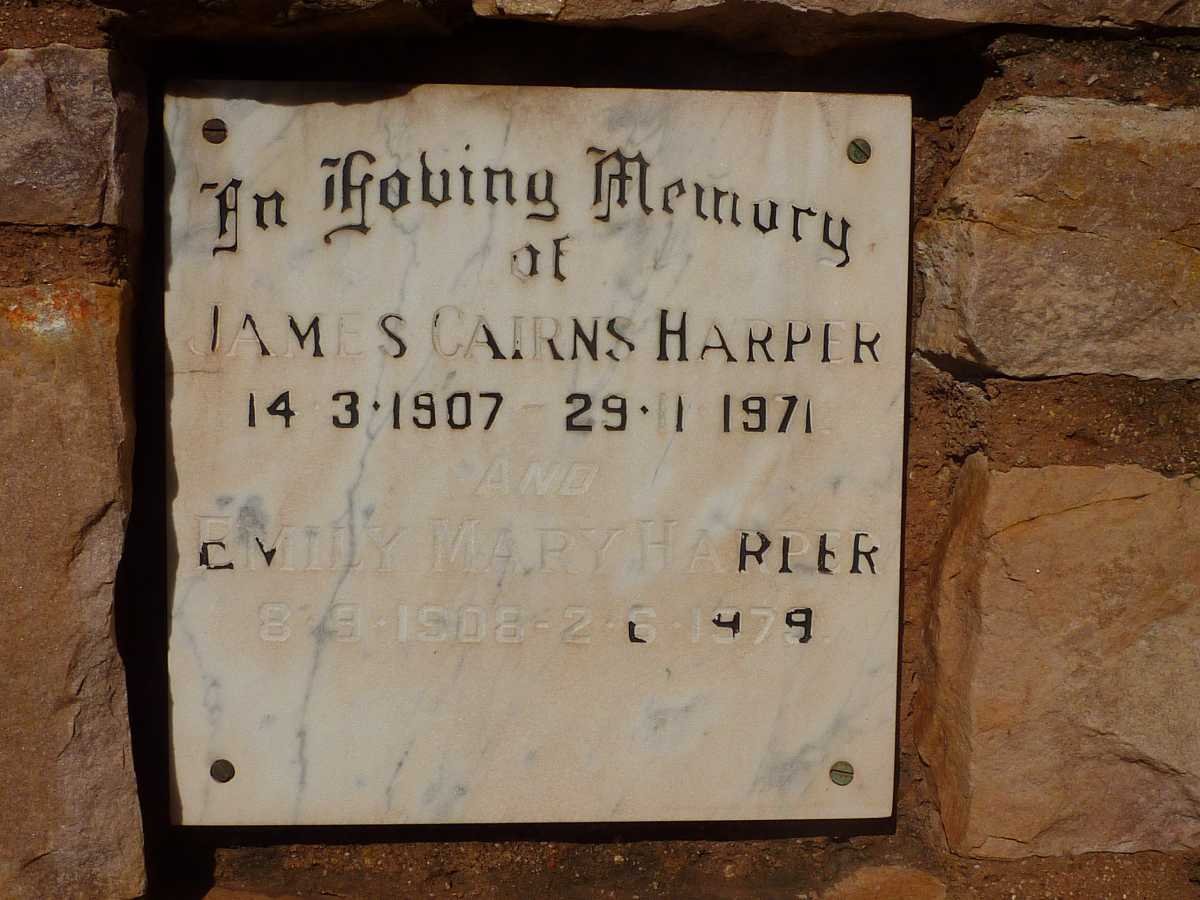 In Loving Memory
of
JAMES CAIRNS HARPER
14·3·1907 - 29·11·1971.
AND
EMILY MARY HARPER
8·9·1908 - 2·6·1979.